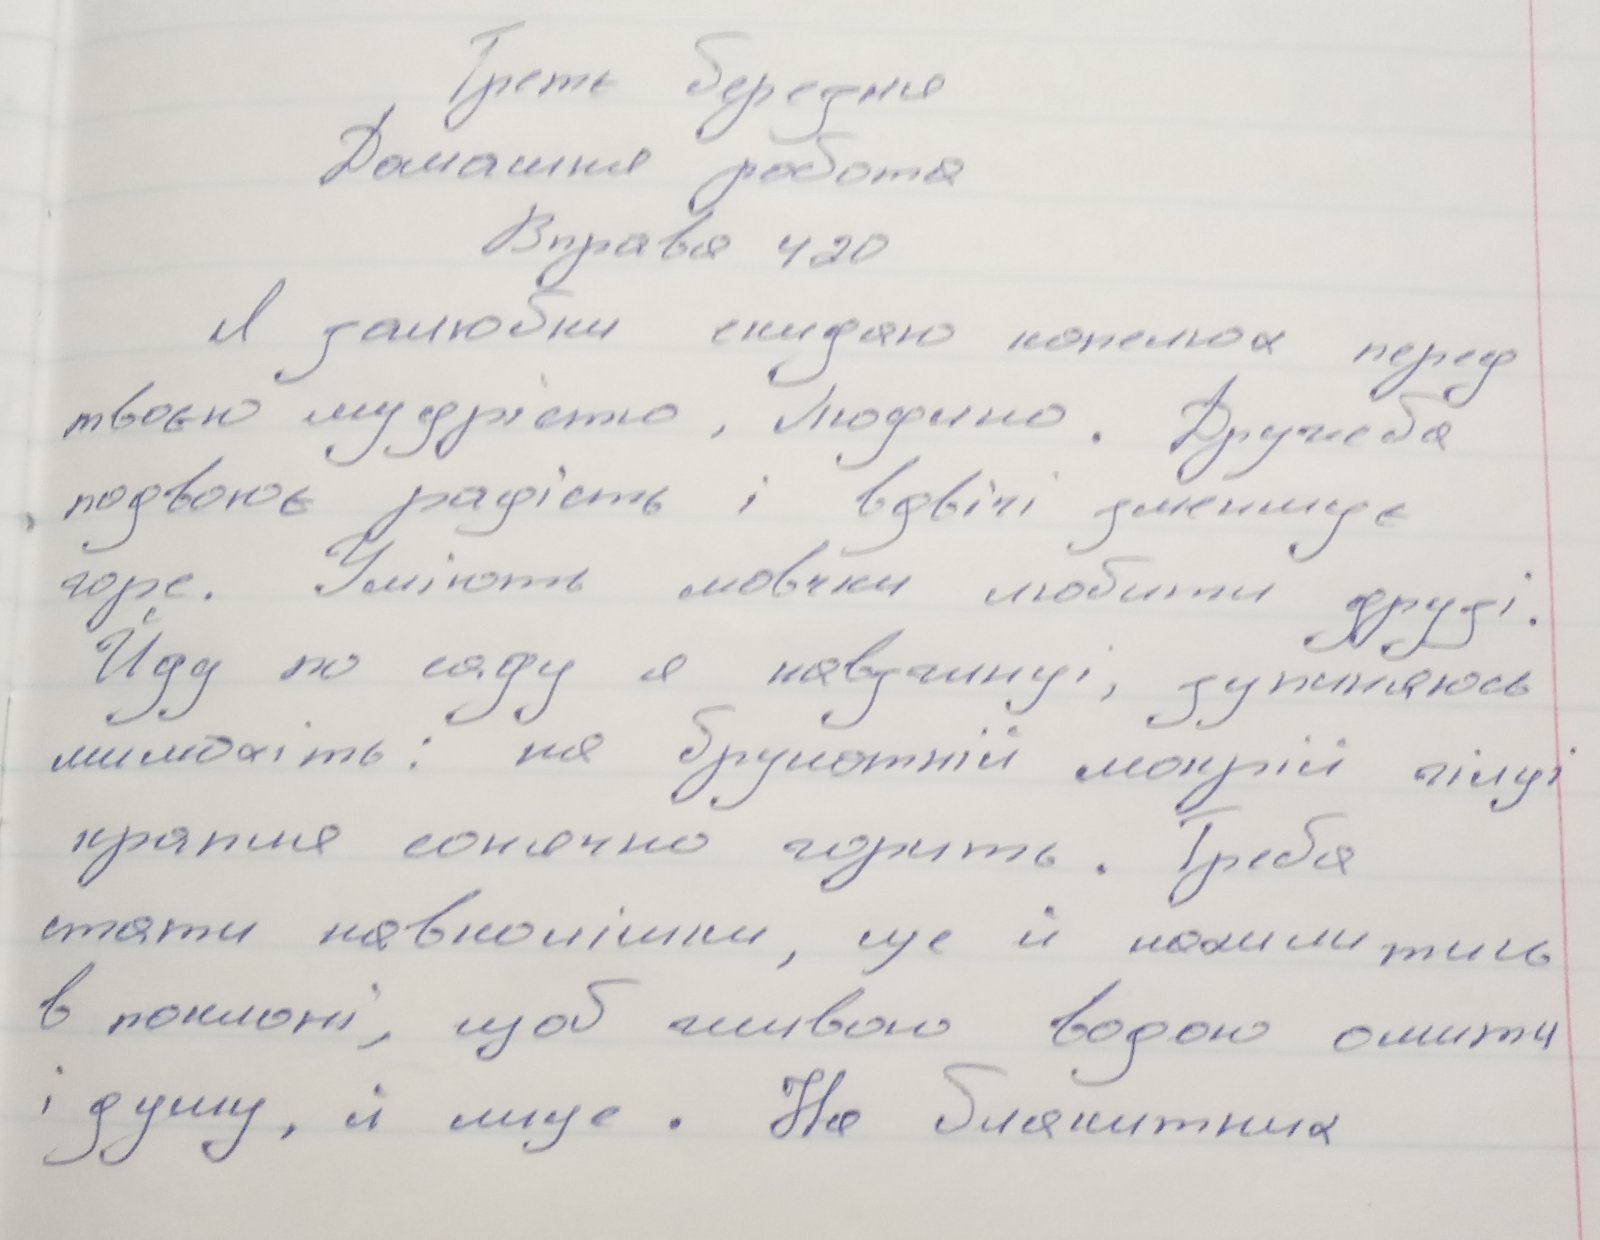 Третє березня
Домашня робота
Вправа 420
Я залюбки скидаю капелюх перед
твоєю мудрістю, Людино. Дружба
подвоює радість і вдвічі зменшує
горе. Уміють мовчки любити друзі.
Йду по саду я навзгинці, зупиняюсь
мимохіть: на брунатній мокрій гілці
крапля сонячно горить. Треба
стати навколішки, ще й нахилитись
в поклоні, щоб живою водою омити
і душу, й лице. На блакитних